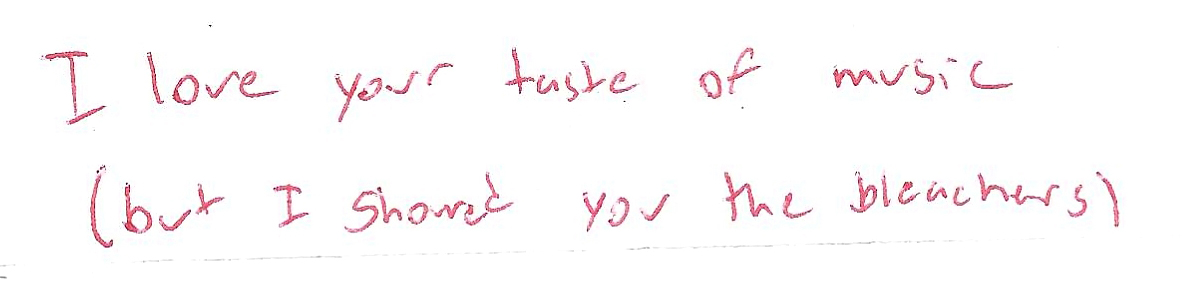 I love your taste of music
(but I showed you the bleachers)